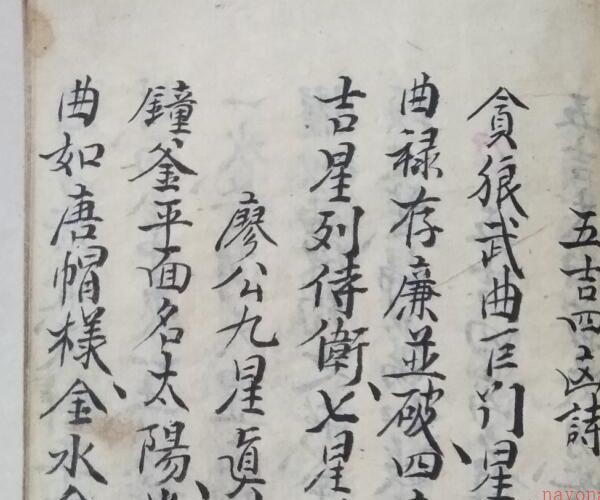 五吉四凶詩
貪狼武曲巨別星
曲禄存廉並破四
吉星列侍衛七星
廖公九星真
鐘釜平面名太陽
曲如唐帽樣金水
nayona